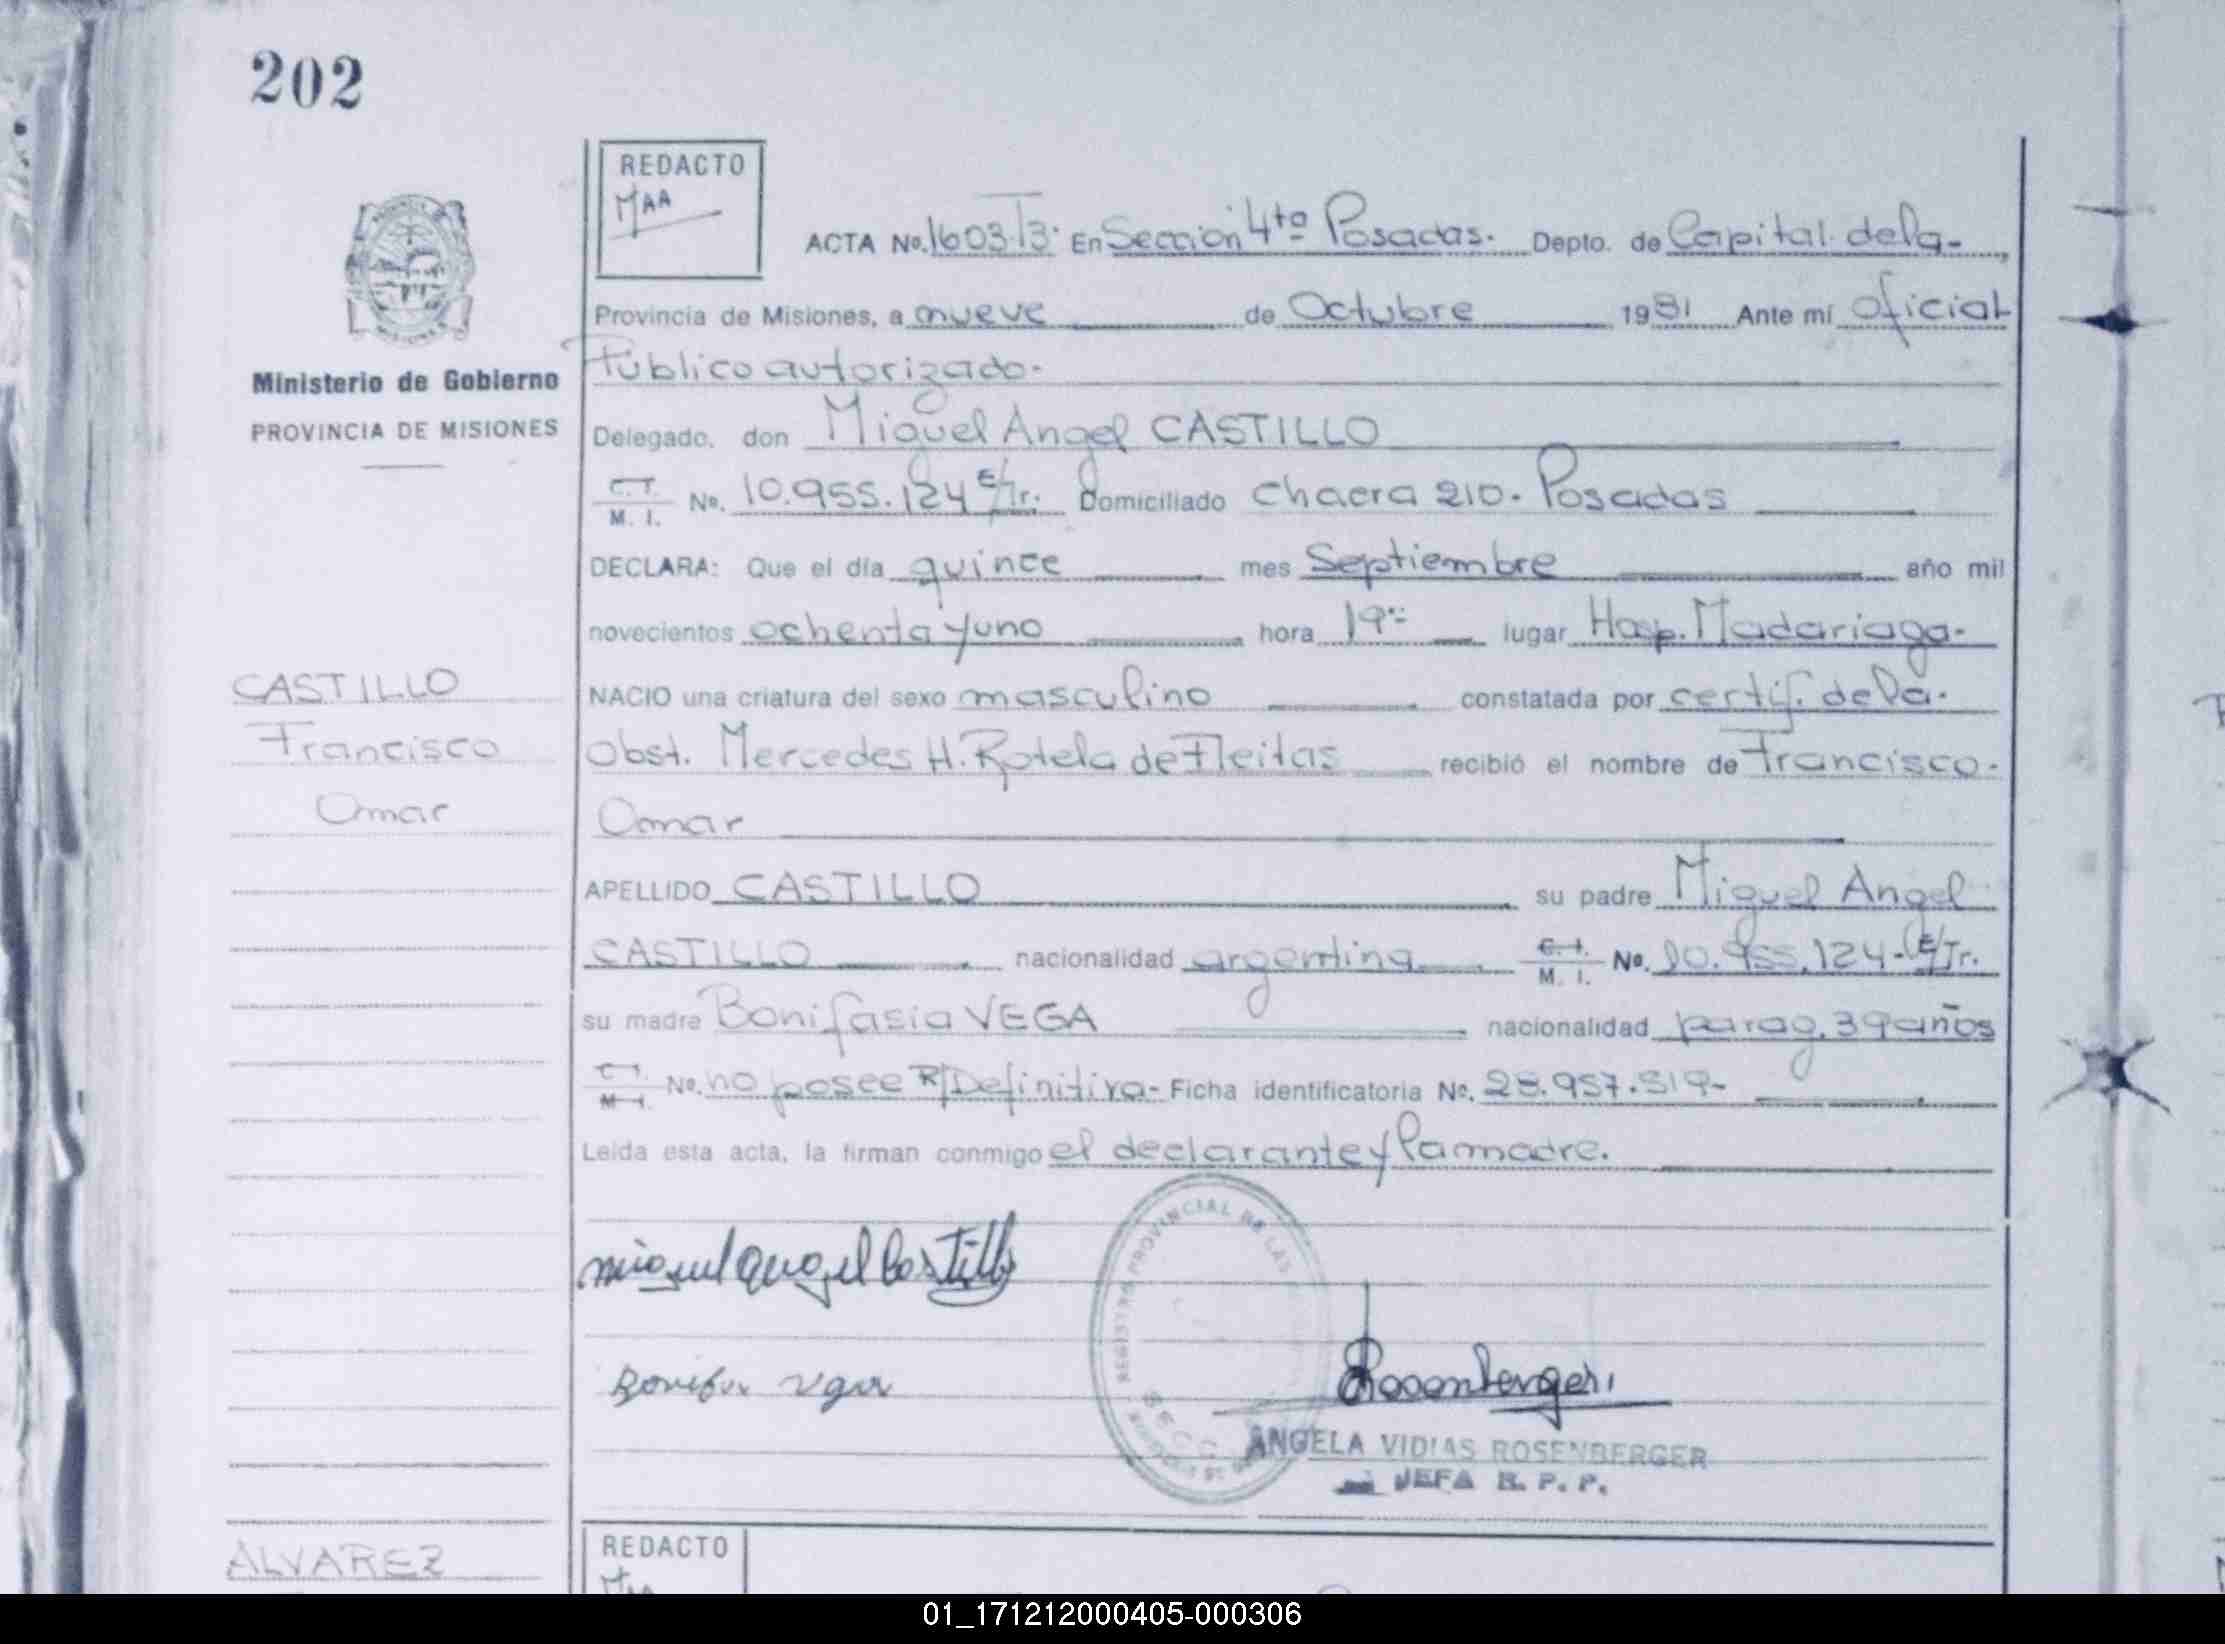 202
REDACTO
MAA
ACTA No. 1603 T3. En Sección 4ta Posadas. Depto. de Capital de la
Provincia de Misiones, a nueve de Octubre 1981 Ante mí oficial
Ministerio de Gobierno
PROVINCIA DE MISIONES
Público autorizado.
Delegado, don Miguel Angel CASTILLO
C.I. M. I. No. 10.955.124 E/Tr. Domiciliado chacra 210. Posadas
DECLARA: Que el día quince mes Septiembre año mil
novecientos ochenta y uno hora 19 lugar Hosp. Madariaga.
CASTILLO
NACIO una criatura del sexo masculino constatada por certif. de la.
Francisco
Obst. Mercedes H. Rotela de Fleitas recibió el nombre de Francisco.
Omar
Omar
APELLIDO CASTILLO su padre Miguel Angel
CASTILLO nacionalidad argentina C.I. M. I. No. 10.955.124-E/Tr.
su madre Bonifasia VEGA nacionalidad parag. 39 años
C.I. M.I. No. no posee R/Definitiva- Ficha identificatoria No. 28.957.319-
Leída esta acta, la firman conmigo el declarante y la madre.
REGISTRO PROVINCIAL DE LAS
miguel angel Castillo
Rosenberger
SECC
ANGELA VIDIAS ROSENBERGER
JEFA R. P. P.
REDACTO
ALVAREZ
01_171212000405-000306